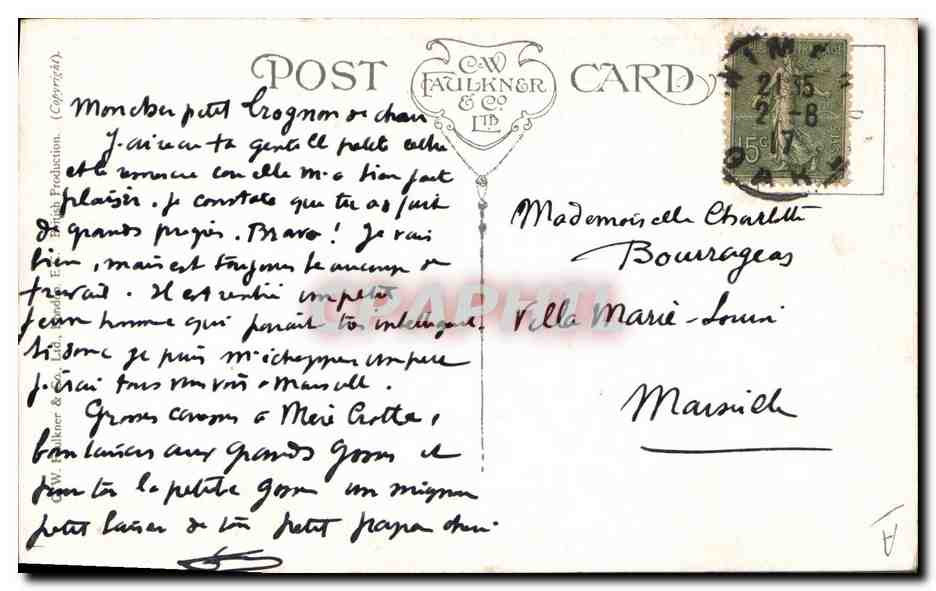 POST CARD
C.W. FAULKNER & Co. LTD
C. W. Faulkner & Co., Ltd., London, E.C. British Production. (Copyright).
NIMES
21 35
2-8
17
GARD
15c
Mon cher petit trognon de chou
J'ai reçu ta gentille petite lettre
et le morceau m'a bien fait
plaisir. Je constate que tu as fait
de grands progrès. Bravo! Je vais
bien, mais est toujours beaucoup de
travail. Il est rentré un petit
jeune homme qui parait très intelligent.
Si donc je puis m'échapper un peu
j'irai tous vous voir à Marseille.
Grosses caresses à Mère Crotte,
bons baisers aux grands gosses et
pour toi la petite gosse un mignon
petit baiser de ton petit papa chéri
Mademoiselle Charlotte
Bourrageas
Villa Marie-Louise
Marseille
CPAPHIL
A